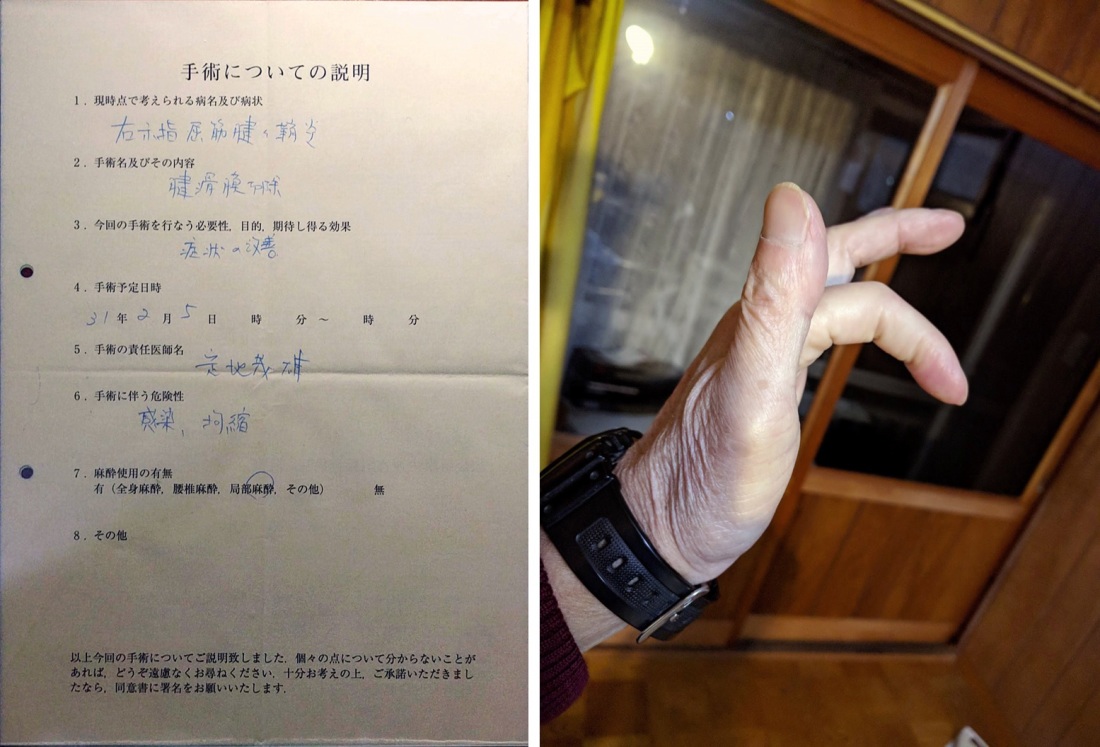 手術についての説明
1. 現時点で考えられる病名及び病状
右示指屈筋腱々鞘炎
2. 手術名及びその内容
腱滑膜切除
3. 今回の手術を行なう必要性, 目的, 期待し得る効果
症状の改善
4. 手術予定日時
31年 2月 5日 時 分〜 時 分
5. 手術の責任医師名
6. 手術に伴う危険性
感染, 拘縮
7. 麻酔使用の有無
有（全身麻酔, 腰椎麻酔, 局部麻酔, その他） 無
8. その他
以上今回の手術についてご説明致しました. 個々の点について分からないことが
あれば, どうぞ遠慮なくお尋ねください. 十分お考えの上, ご承諾いただきまし
たなら, 同意書に署名をお願いいたします.